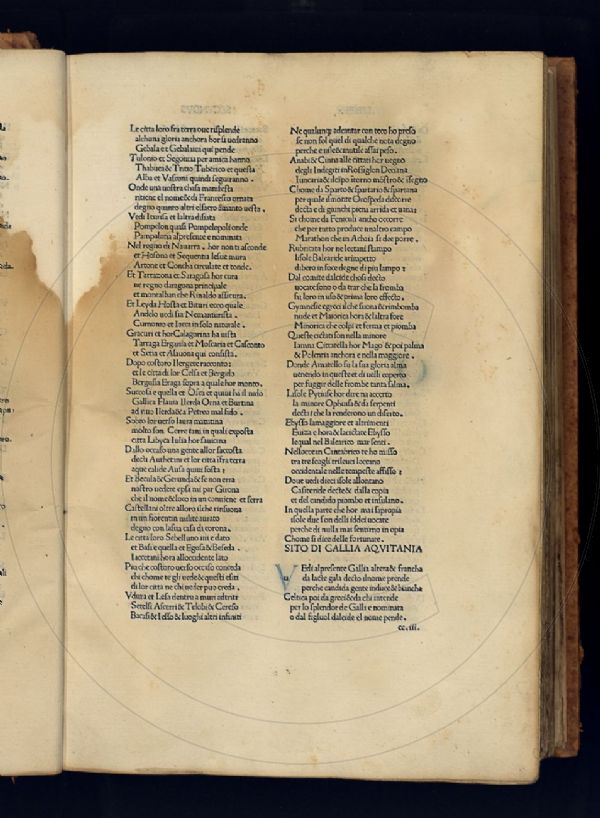 Le citta loro fra terra oue risplende
alchuna gloria anchora hor si uedranno
Gebala et Gebalaica qui pende
Tulonio et Segontia per amica hanno
Thabuca & Tritio Tuberico et questa
Alba et Vasconi quindi seguiranno
Onde una uostra chosa manifesta
ritiene el nome & di Francesco ornata
degno quanto altri essere uesta .
Vedi Iturisa et laltra
Pompelon quasi Pompeiopoli onde
Pampalona al presente e nominata
Nel regno di Nauarra . hor non tasconde
et Iesona et Sequentia lesue mura
Artone et Concha circulate et tonde .
Et Tarrazona et Saragosa hor cura
ne regno daragona principale
et montalban che Rinaldo assicura .
Et Leyda Hosta et Bituri ecco quale
Andelo uedi sua Nemanturista .
Curnonio et Iacca in solo naturale .
Gracuri et hor Calagurina ha uista
Tarraga Ergauia et Moscaria et Casconto
et Setia et Alauona qui consista .
Dopo costoro Ilergete racconto
et le citta di lor Celsa et Bergido
Bergusia Eraga sopra a qual hor monto .
Succosa e quella et Osca et quiui ha il nido
Gallica Flauia Ilerda Orna et Burtina
ad uiuo Ilerda & a Petreo mal fido .
Sobro lor uerso laura matutina
molto son . Cerretani in quali exposta
citta Libyca Iulia hor faucina
Dallo occaso una gente allor saccosta
decti Authetani et lor citta ifra terra
aque calide Ausa quiui sosta :
Et Becula & Gerunda & se non erra
nostro uedere epsa tui par Girona
che il nome & loco in un contiene et serra
Castellani oltre alloro siche risuona
in un fiorentin
degno con la sua casa di corona .
Le citta loro Sebelluno mi e dato
et Basi e quella et Egosa & Beseda .
Iaccetani hora alloccidente lato
Piu che costoro uerso occaso conceda
chi chome te gli uede & questi essi
di lor citta ne chi ne fer puo creda .
Vdura et Lesa dentro a muri
Setelsi Ascerri & Telobi & Cereso
Bacasi & Iesso & luoghi altri infiniti
Ne qualunq adcantar con teco ho preso
se non sol quel di qualche nota degno
perche e utile & inutile assai peso .
Anabi & Cinna alle cittati hor uegno
degli Indegeti in Rossiglon Deciana
Iuncaria & dipo storno mostro & ISegno
Chome da Sparto & spartario & spartana
per quale il monte Orospeda decto ne
decta e di giunchi piena arrida et uana :
Si chome da Feniculi ancho occorre
che per tutto produce un altro campo
Marathon che in Achaia si due porre .
Rubricata hor ne lectani stampo
Isole Balearide arimpetto
dibero in suoe degne di piu lampo :
Dal comite dalcide chosi decto
uocatesono o da trar che la fromba
fu loro in uso & prima loro effecto .
Gymnesie e greci il che suona & rimbomba
nude et Maiorica hora & laltra fore
Minorica che colpi et ferma et piomba
Queste cictati son nella minore
Iamna Cittadella hor Mago & poi palma
& Polentia anchora e nella maggiore .
Donde Amatello fu la sua gloria alma
uenendo in queste et di uelli coperto
per fuggir delle frombe tanta salma .
Lisole Pytiuse hor dire na accerto
la minore Ophiusa & da serpenti
decta : che la renderono un diserto .
Ebysso la maggiore et altrimenti
Euiza e hora & la cictate Ebysso
le qual nel Balearico mar senti .
Nelloceano Cantabrico te ho misso
tra tre scogli trileuci locorno
occidentale nelle tempeste affisso :
Doue uedi dieci isole allontano
Casiteride decte & dalla copia
et del candido piombo et insulano .
In quella parte che hor mai sapropia
isole due son delli iddei uocate
perche di nulla mai sentirno in opia
Chome si dice delle fortunate .
SITO DI GALLIA AQVITANIA
V Edi al presente Gallia altera & francha
da lacte gala decto il nome prende
perche candida gente induce & biancha
Celtica poi da greci & da chi intende
per lo splendor de Galli e nominata
o dal figliuol dalcide el nome pende .
cc. iii.